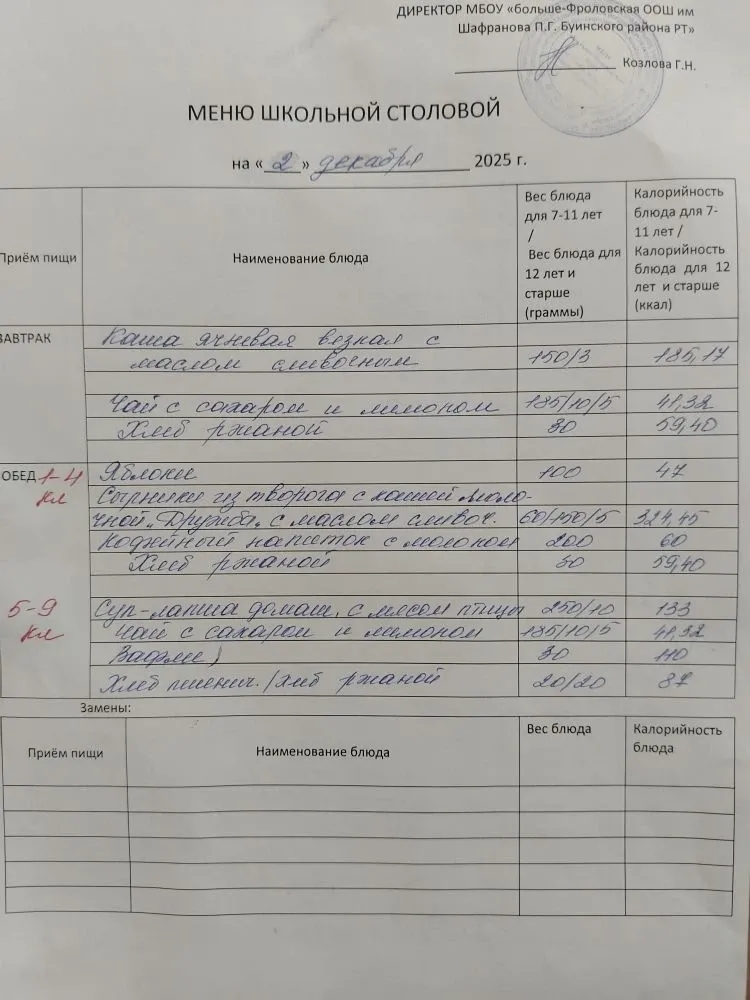 ДИРЕКТОР МБОУ «больше-Фроловская ООШ им
Шафранова П.Г. Буинского района РТ»
Козлова Г.Н.
МЕНЮ ШКОЛЬНОЙ СТОЛОВОЙ
на « 2 » декабря 2025 г.
Приём пищи
Наименование блюда
Вес блюда
для 7-11 лет
/
Вес блюда для
12 лет и
старше
(граммы)
Калорийность
блюда для 7-
11 лет /
Калорийность
блюда для 12
лет и старше
(ккал)
ЗАВТРАК
Каша ячневая вязкая с
маслом сливочным 150/3 185,17
Чай с сахаром и лимоном 185/10/5 41,32
Хлеб ржаной 30 59,40
ОБЕД 1-4 Яблоки 100 47
кл Сырники из творога с кашей моло-
чной „Дружба„ с маслом сливоч. 60/150/5 324,45
Кофейный напиток с молоком 200 60
Хлеб ржаной 30 59,40
5-9 Суп-лапша домаш. с мясом птицы 250/10 133
кл Чай с сахаром и лимоном 185/10/5 41,32
Вафли) 30 110
Хлеб пшенич. / хлеб ржаной 20/20 87
Замены:
Приём пищи
Наименование блюда
Вес блюда
Калорийность
блюда